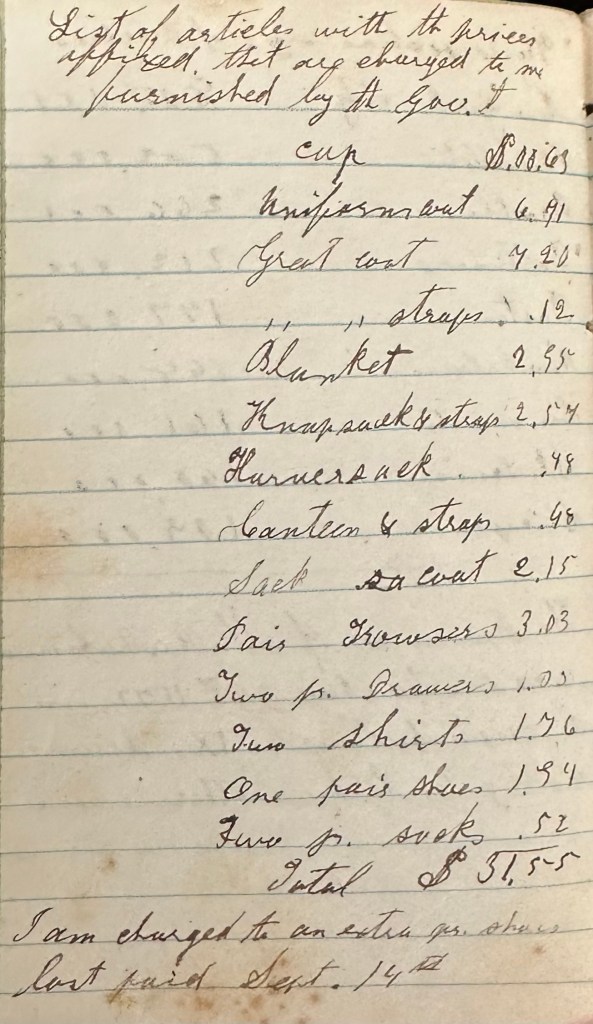 List of articles with th prices
affixed, that are charged to me
furnished by th Gov.t
cap $.00.63
Uniform coat 6.71
Great coat 7.20
,, ,, straps .12
Blanket 2.95
Knapsack & strap 2.57
Haversack .48
Canteen & strap .48
Sack coat 2.15
Pair Trowsers 3.03
Two pr. Drawers
Two shirts 1.76
One pair shoes 1.94
Two pr. socks .52
Total $ 31.55
I am charged to an extra pr. shoes
last paid Sept. 14th